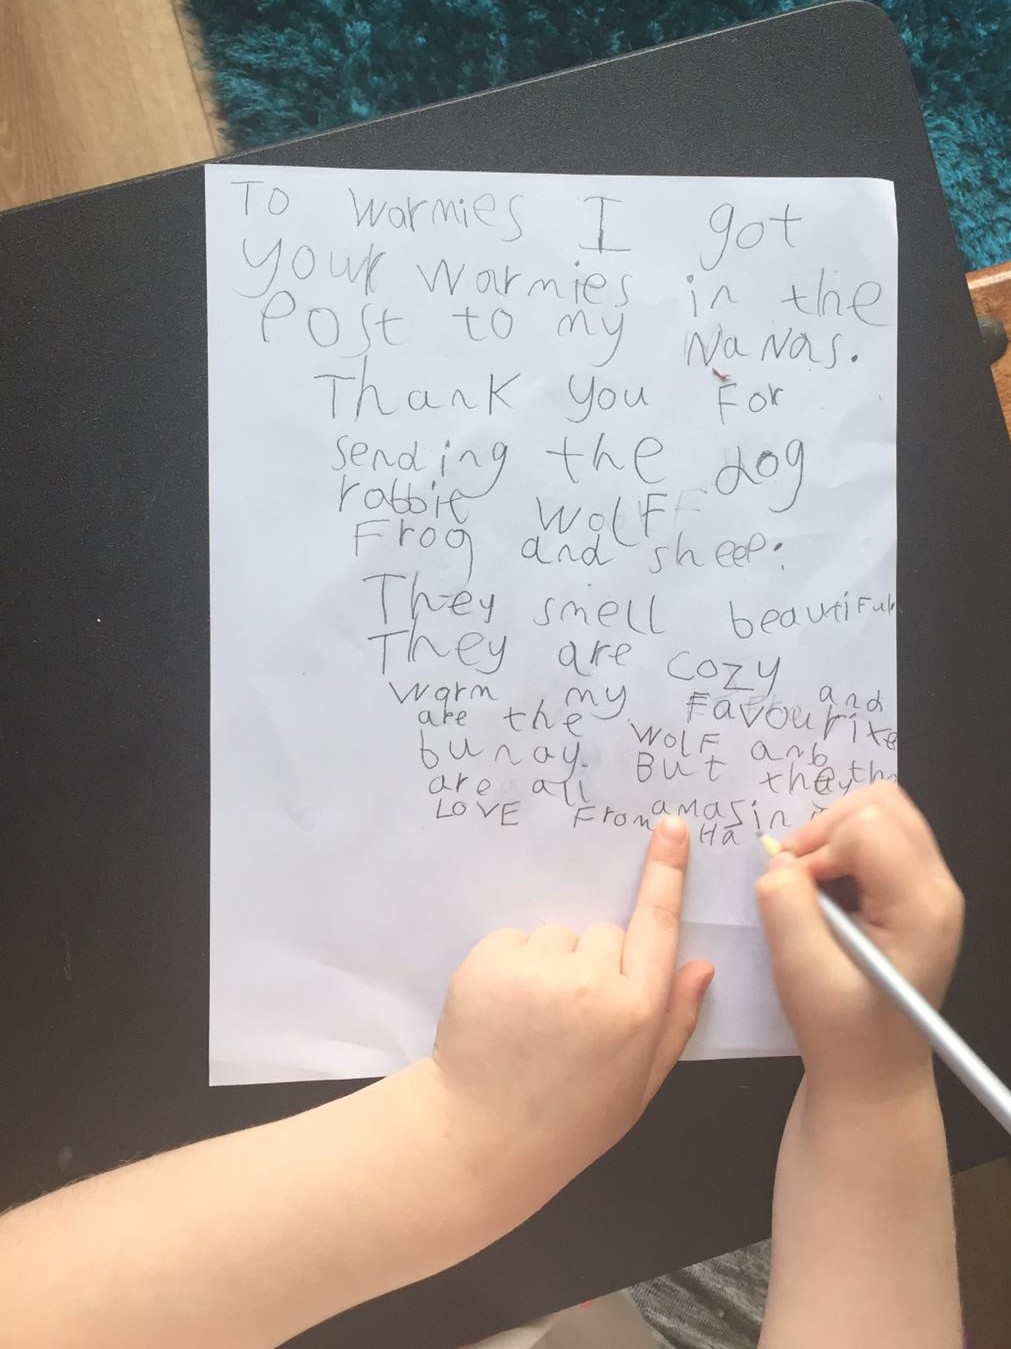 To Warmies I got
your Warmies in the
Post to my NaNas.
Thank you For
sending the dog
rabbit WolF
Frog and sheep.
They smell beautiful
They are cozy and
warm my Favourite
are the WolF and
bunny. But they
are all amasin
LOVE From Ha